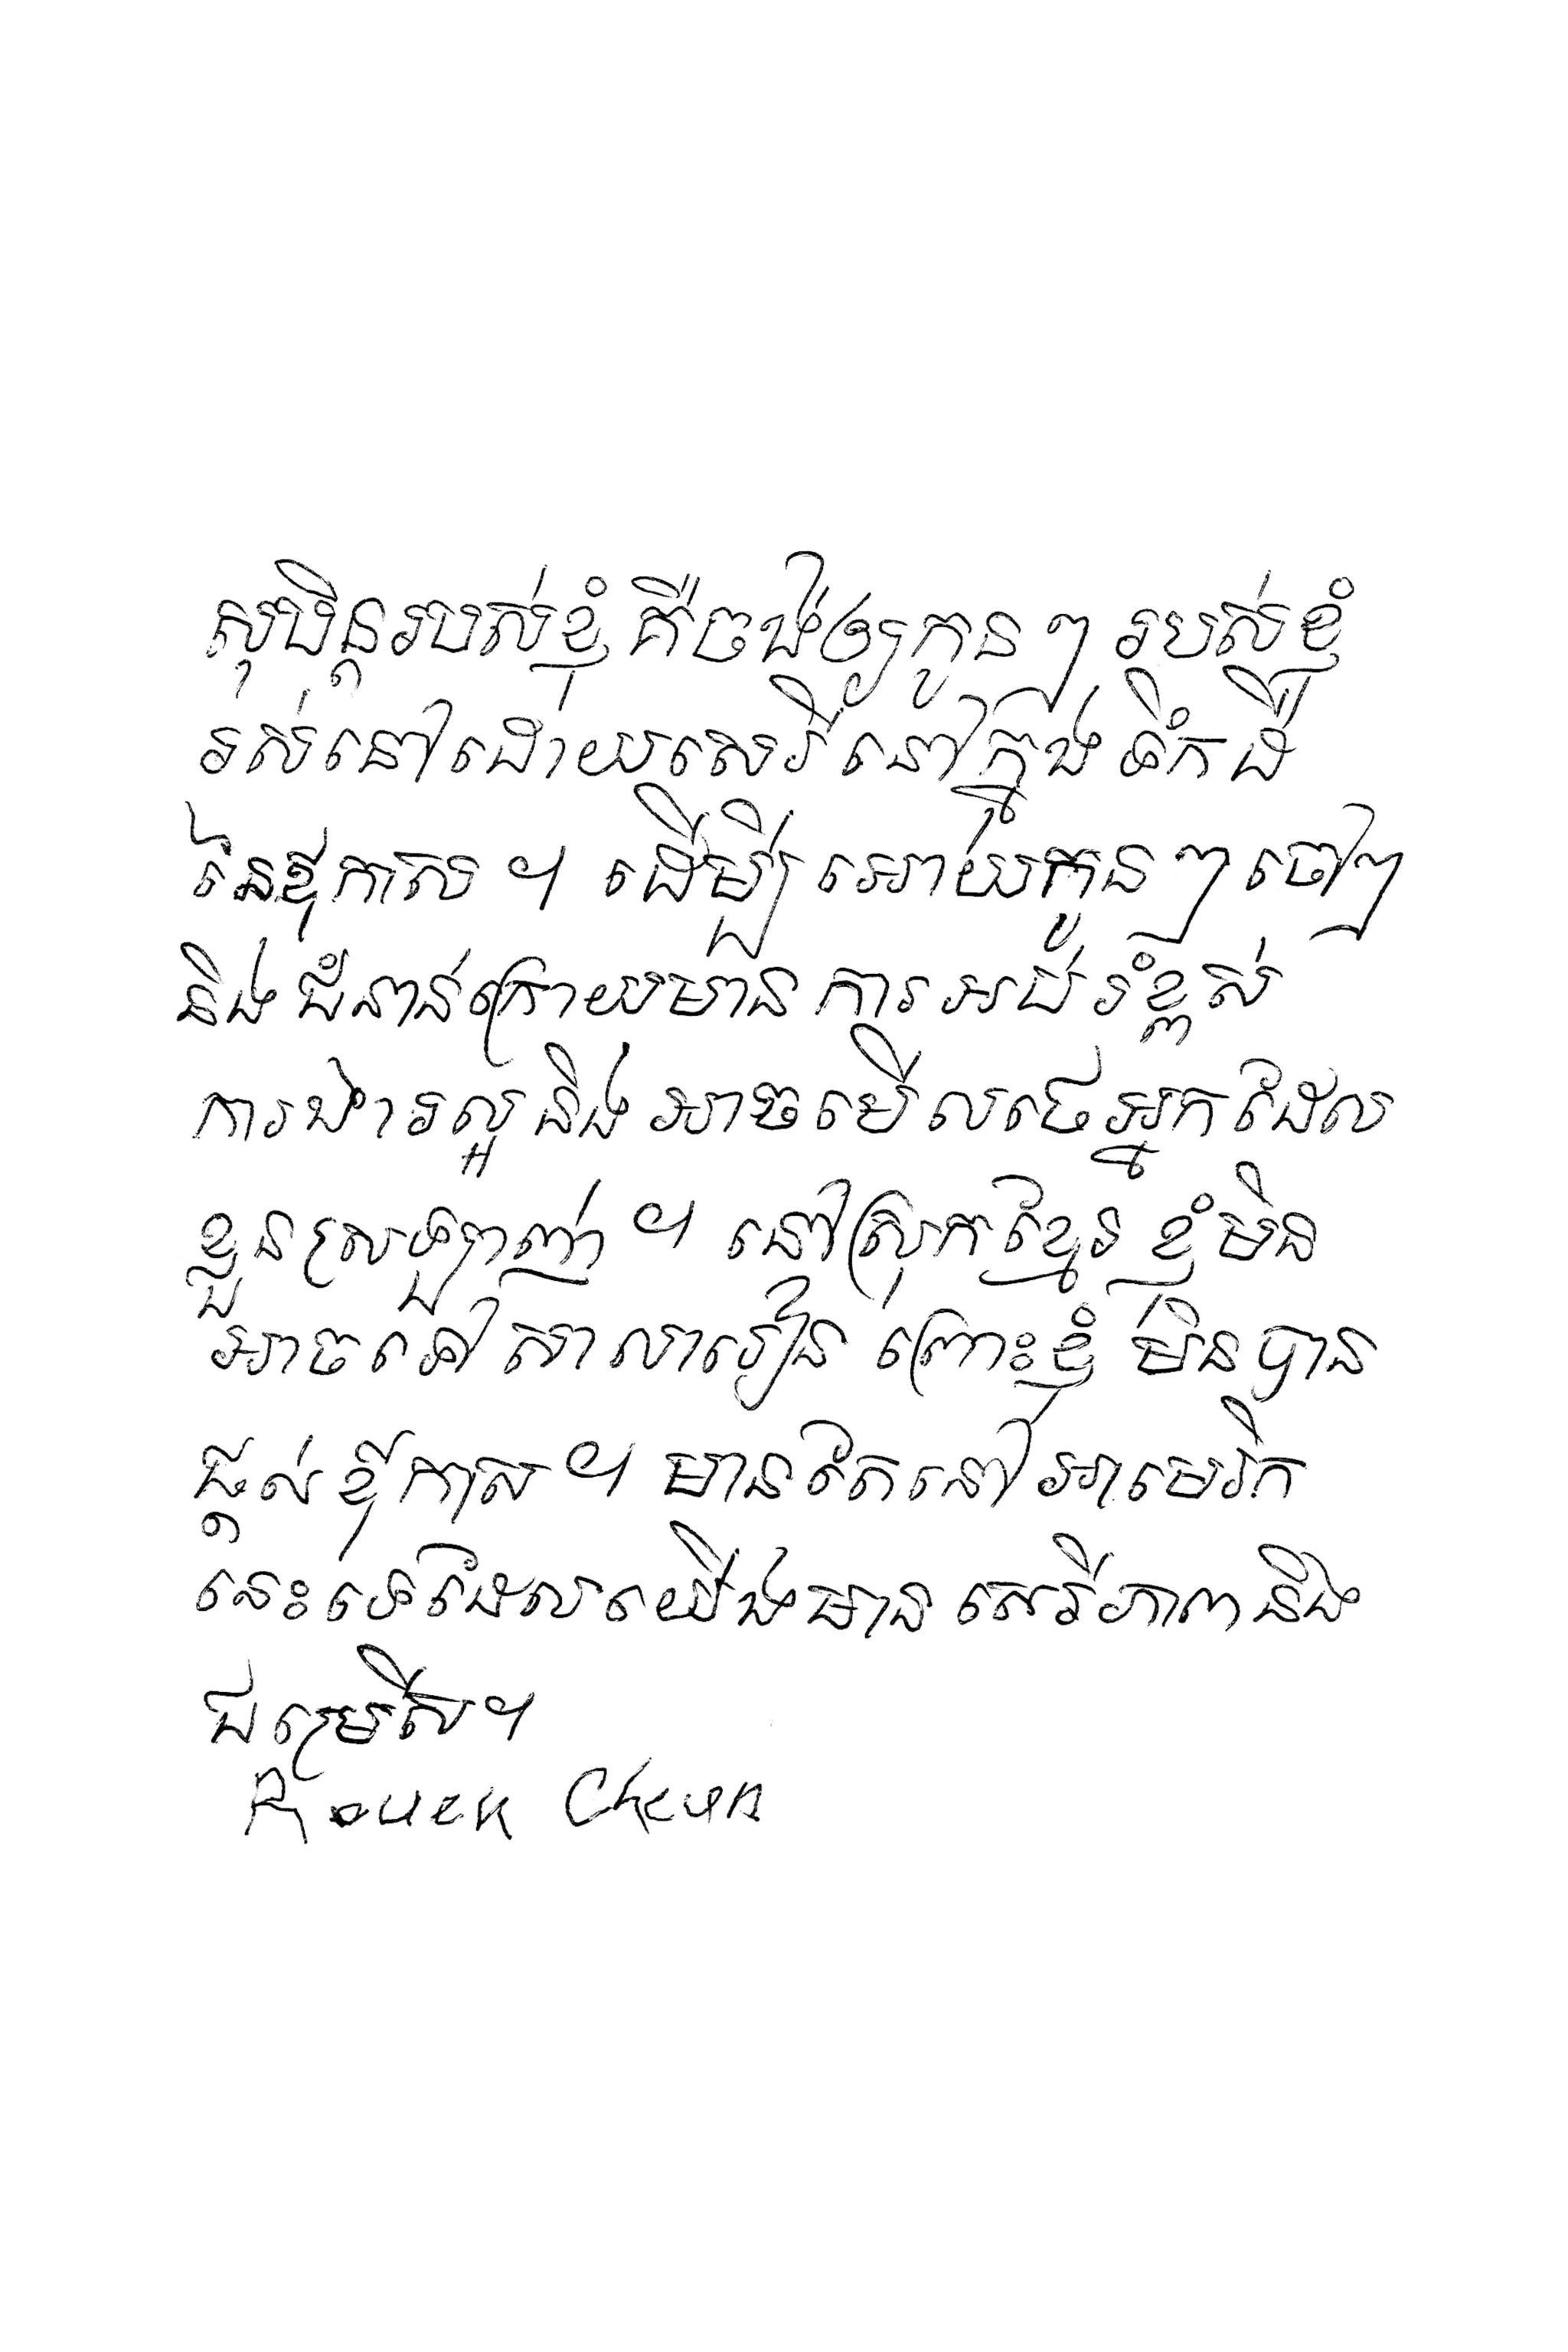 សុបិន្តរបស់ខ្ញុំ គឺចង់ឲ្យកូនៗ របស់ខ្ញុំ
រស់នៅដោយសេរី នៅក្នុងទឹកដី
នៃឱកាស ។ ដើម្បី អោយកូនៗ ចៅៗ
និងជំនាន់ក្រោយមានការអប់រំខ្ពស់
ការងារល្អ និងអាចមើលថែអ្នកដែល
ខ្លួនស្រឡាញ់ ។ នៅស្រុកខ្មែរ ខ្ញុំមិន
អាចទៅសាលារៀន ព្រោះខ្ញុំ មិនបាន
ផ្តល់ឱកាស ។ មានតែនៅអាមេរិក
នេះទេដែលយើងមានសេរីភាពនិង
ជម្រើស។
Rouen Cheun